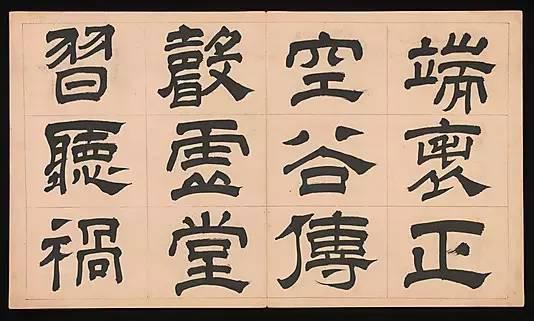 端表正
空谷傳
聲虛堂
習聽禍